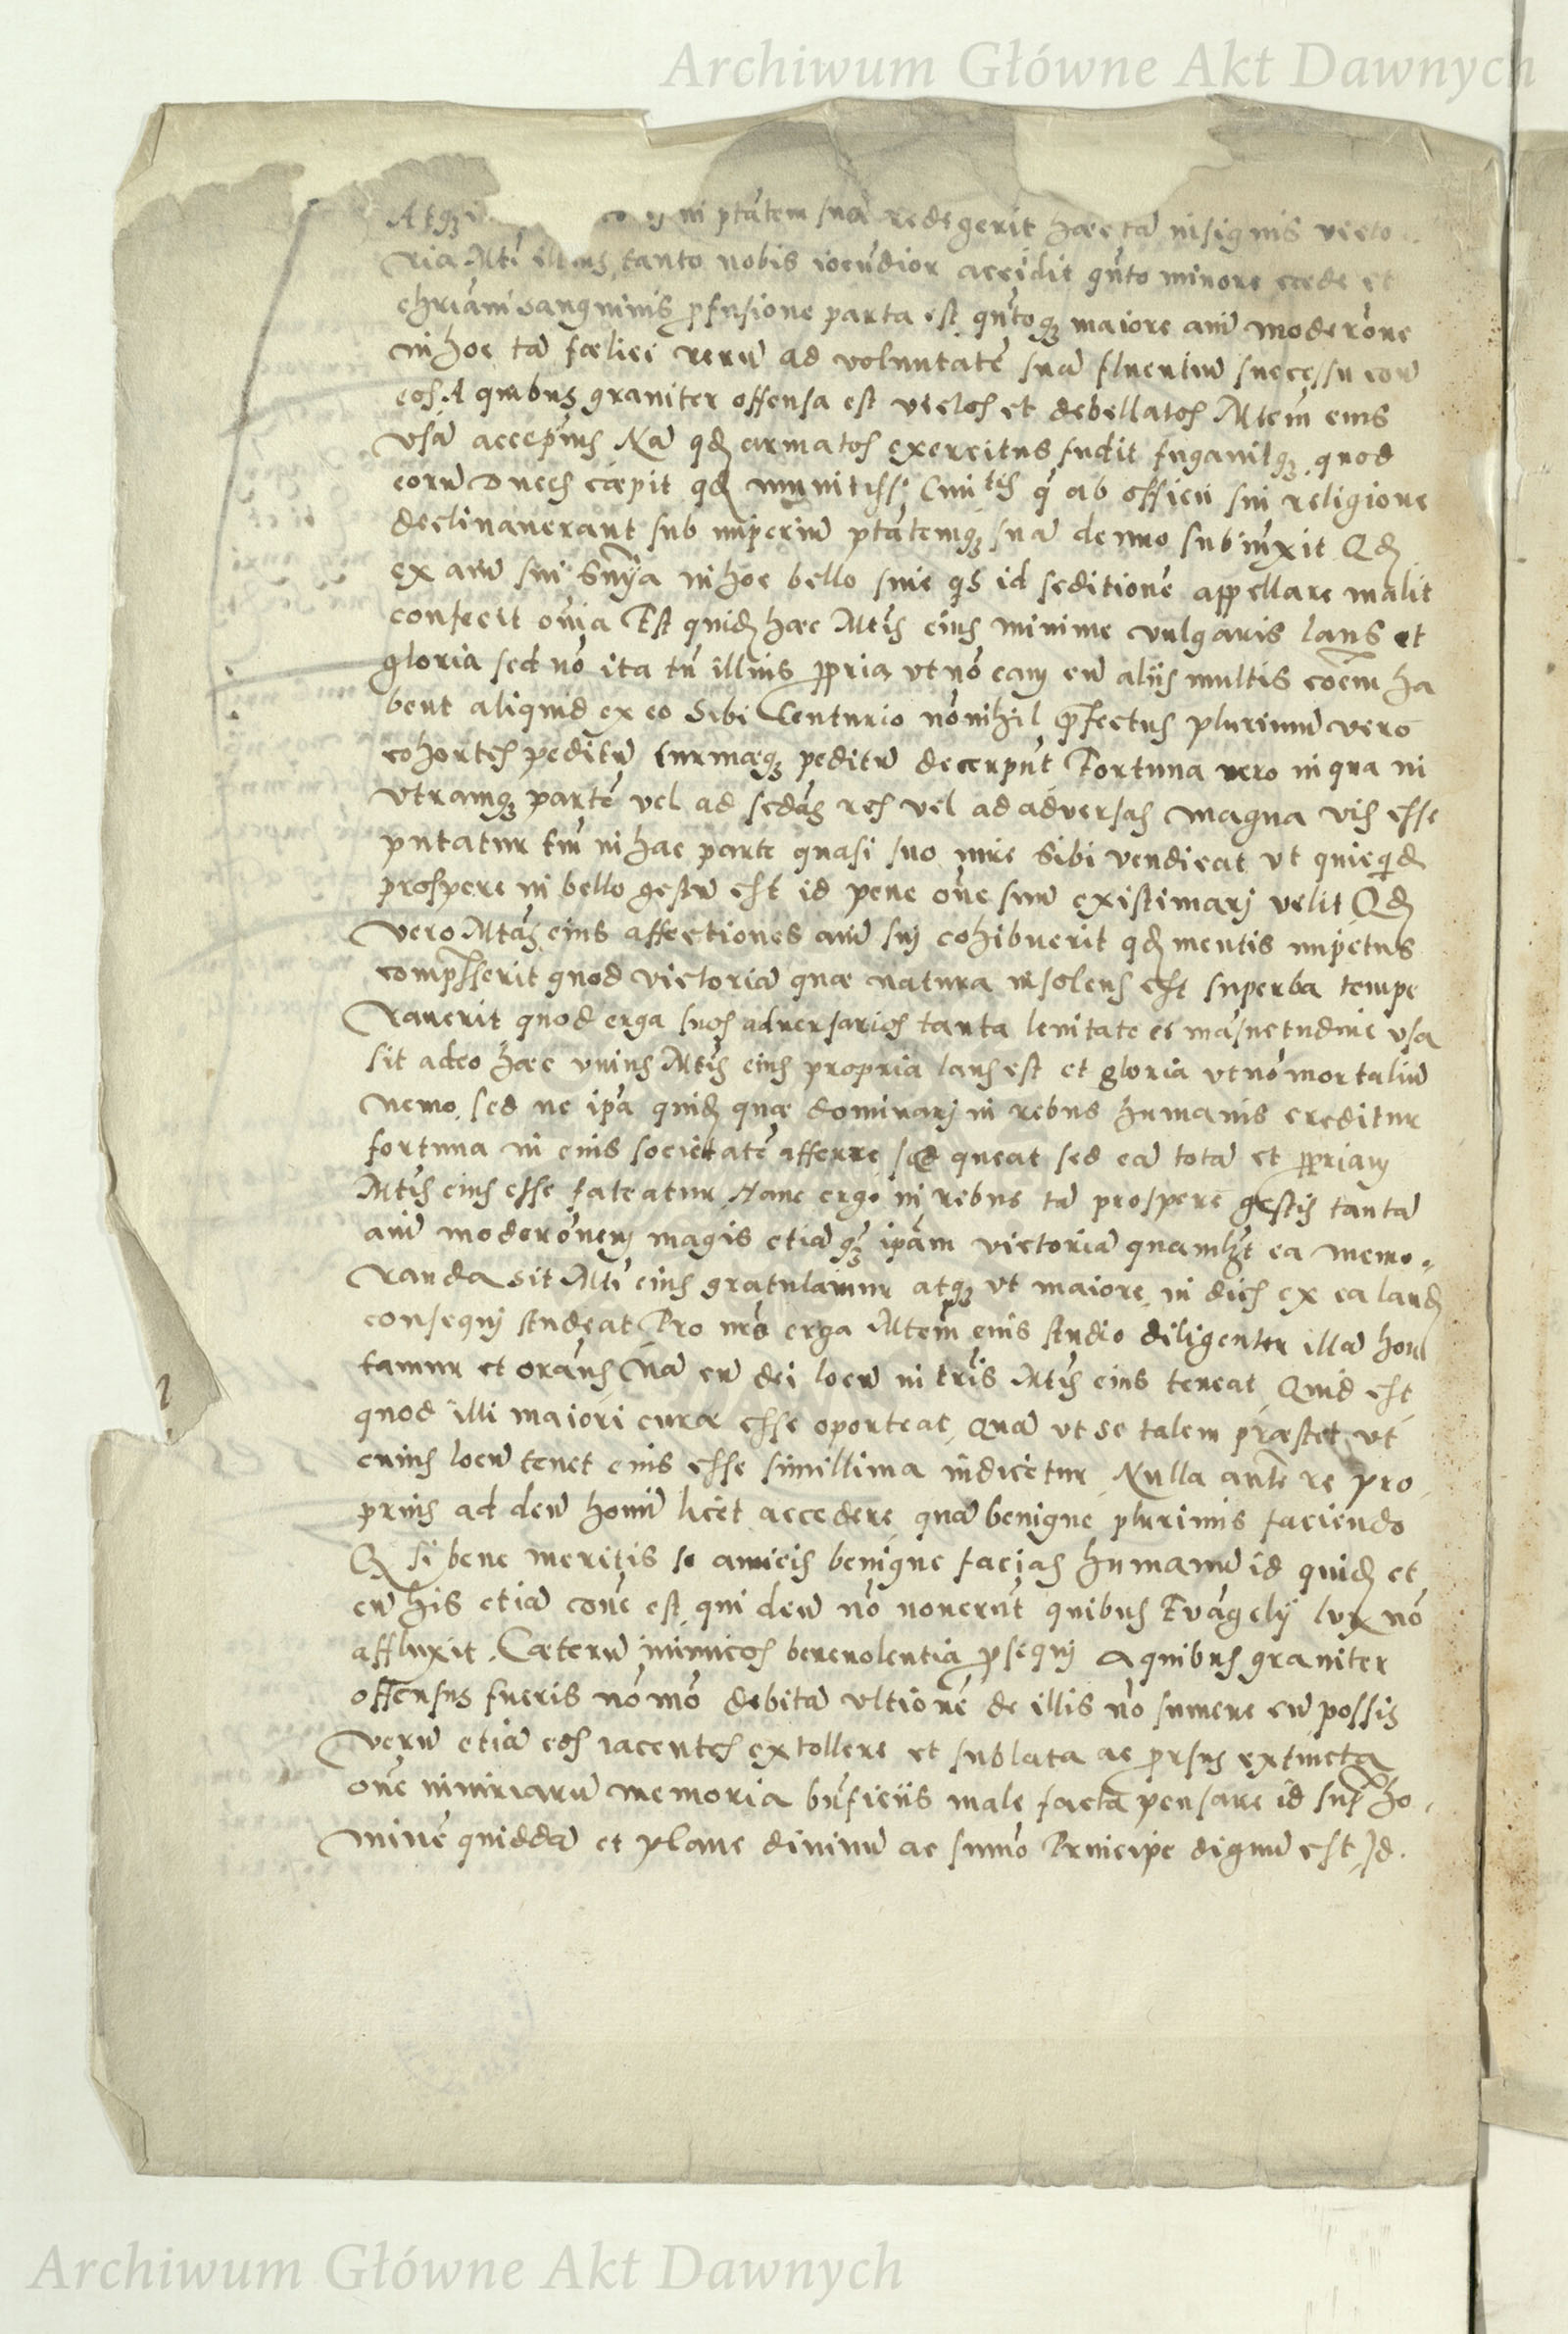 Archiwum Główne Akt Dawnych
Atq; in ptātem suā redegerit hæc tā insignis victo
ria Mti illius tanto nobis iocūdior accidit qūto minore cæde et
chriām sanguinis pfusione parta est qūtoq; maiore aīm moderōne
in hoc tā fœlici rerū ad voluntatē suā fluentiū successu con
eos A quibus graviter offensa est victos et debellatos Mtem eius
vsā accepīms Nā qd armatos exercitus fudit fugavitq; quod
eorū Duces cæpit qd munitiss: Civitēs q ab officii sui religione
declinaverant sub imperiū ptātemq; suā denuo subiūxit Qd
ex aīm sui snīa in hoc bello sive qs id seditionē appellare malit
confecit oīa Est quid hæc Mtis eius minime vulgaris laus et
gloria sed nō ita tn illius ppria vt nō eam cū aliis multis cōem ha
bent aliquid ex eo Sibi Centurio nōnihil pfectus plurimū vero
cohortes peditū turmæq; peditū decerpūt Fortuna vero in qua in
vtramq; partē vel ad secdas res vel ad adversas magna vis esse
putatur tm in hac parte quasi suo iure sibi vendicat vt quicqid
prospere in bello gestū est id pene oīe suū existimarj velit Qd
vero Mtas eius affectiones aīm suj cohibuerit qd mentis impetus
compsserit quod victoriā quæ natura insolens est superba tempe
raverit quod erga suos adversarios tanta lenitate et māsuetudine vsa
sit adeo hæc vnius Mtis eius propria laus est et gloria vt nō mortaliū
nemo sed ne ipa quid quæ dominarj in rebus humanis creditur
fortuna in eius societatē afferre sed queat sed eā totā et ppriam
Mtis eius esse fateatur Hanc ergo in rebus tā prospere gestis tantā
aīm moderōnem magis etiā q; ipām victoriā quamlȝt ea memo
randa sit Mti eius gratulamur atq; vt maiorē in dies ex ea laud
consequj studeat Pro nrō erga Mtem eius studio diligenter illā hor
tamur et orams Nā cū dei locū in tris Mtis eius teneat Quid est
quod illi maiori curæ esse oporteat Quā vt se talem præstet vt
cuius locū tenet eius esse simillima iudicetur Nulla autē re pro
prius ad deū homī licet accedere quā benigne plurimis faciendo
Q si bene meritis se amicis benigne facias humanū id quid et
cū his etiā cōne est qui deū nō noverūt quibus Evāgelij lux nō
affluxit Cæterū inimicos benevolentia psequj A quibus graviter
offensus fueris nō mō debitā vltionē de illis nō sumere cū possis
verū etiā eos iacentes extollere et sublata ac prsus extincta
oīe iniuriarū memoria bnficiis male facta pensare id supr ho
minē quiddā et plane divinū ac sumō Principe dignū est Id
Archiwum Główne Akt Dawnych